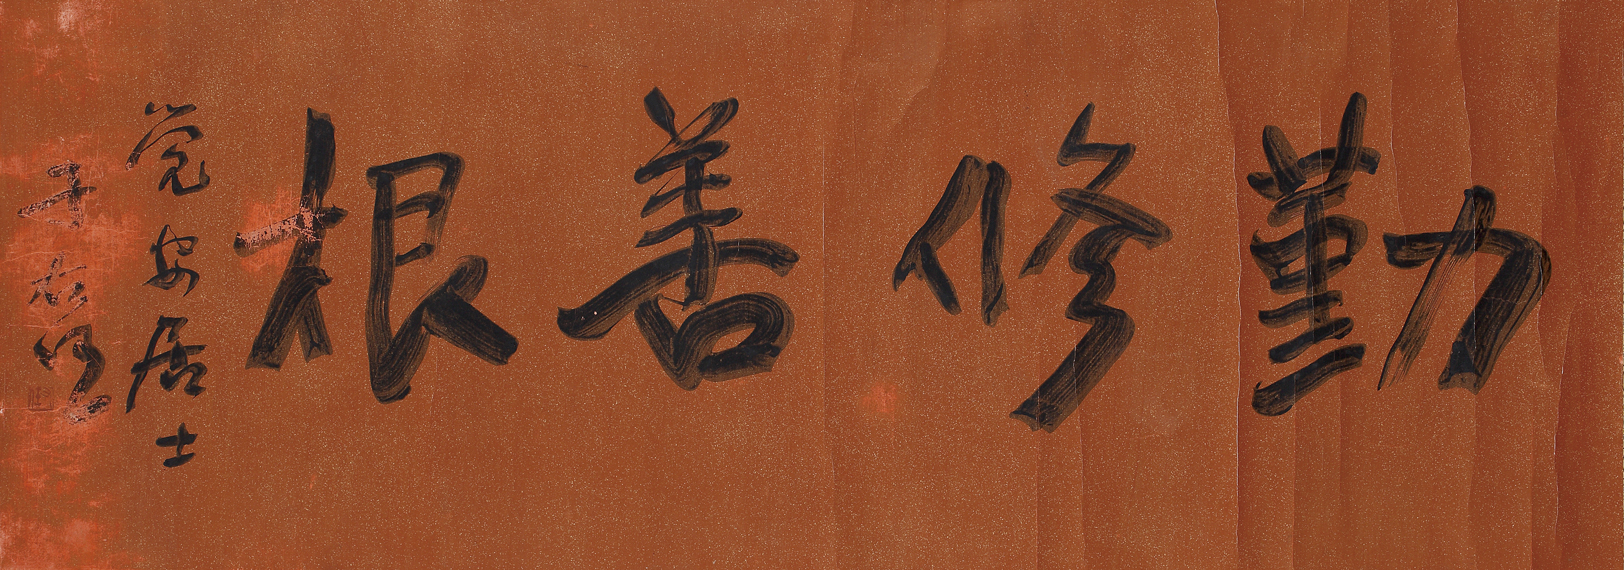 勤修善根
觉安居士
于右任